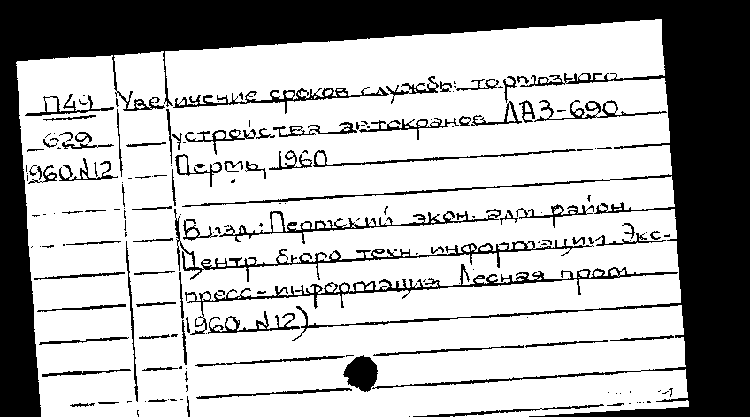 П49 Увеличение сроков службы тормозного
629 устройства автокранов ЛАЗ-690.
1960.N12 Пермь, 1960
(В изд.: Пермский экон. адм. район.
Центр. бюро техн. информации. Экс-
пресс-информация Лесная пром.
1960. N12).